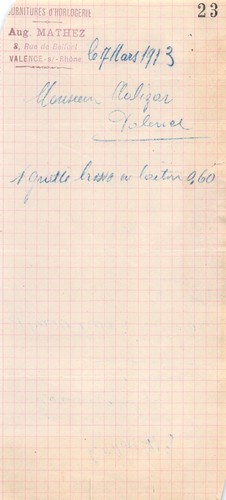 FOURNITURES D'HORLOGERIE
23
Aug. MATHEZ
8, Rue de Belfort
VALENCE-s/-Rhône
le 7 Mars 1913
Monsieur
Valence
1 grosse brosse en laiton 0,60